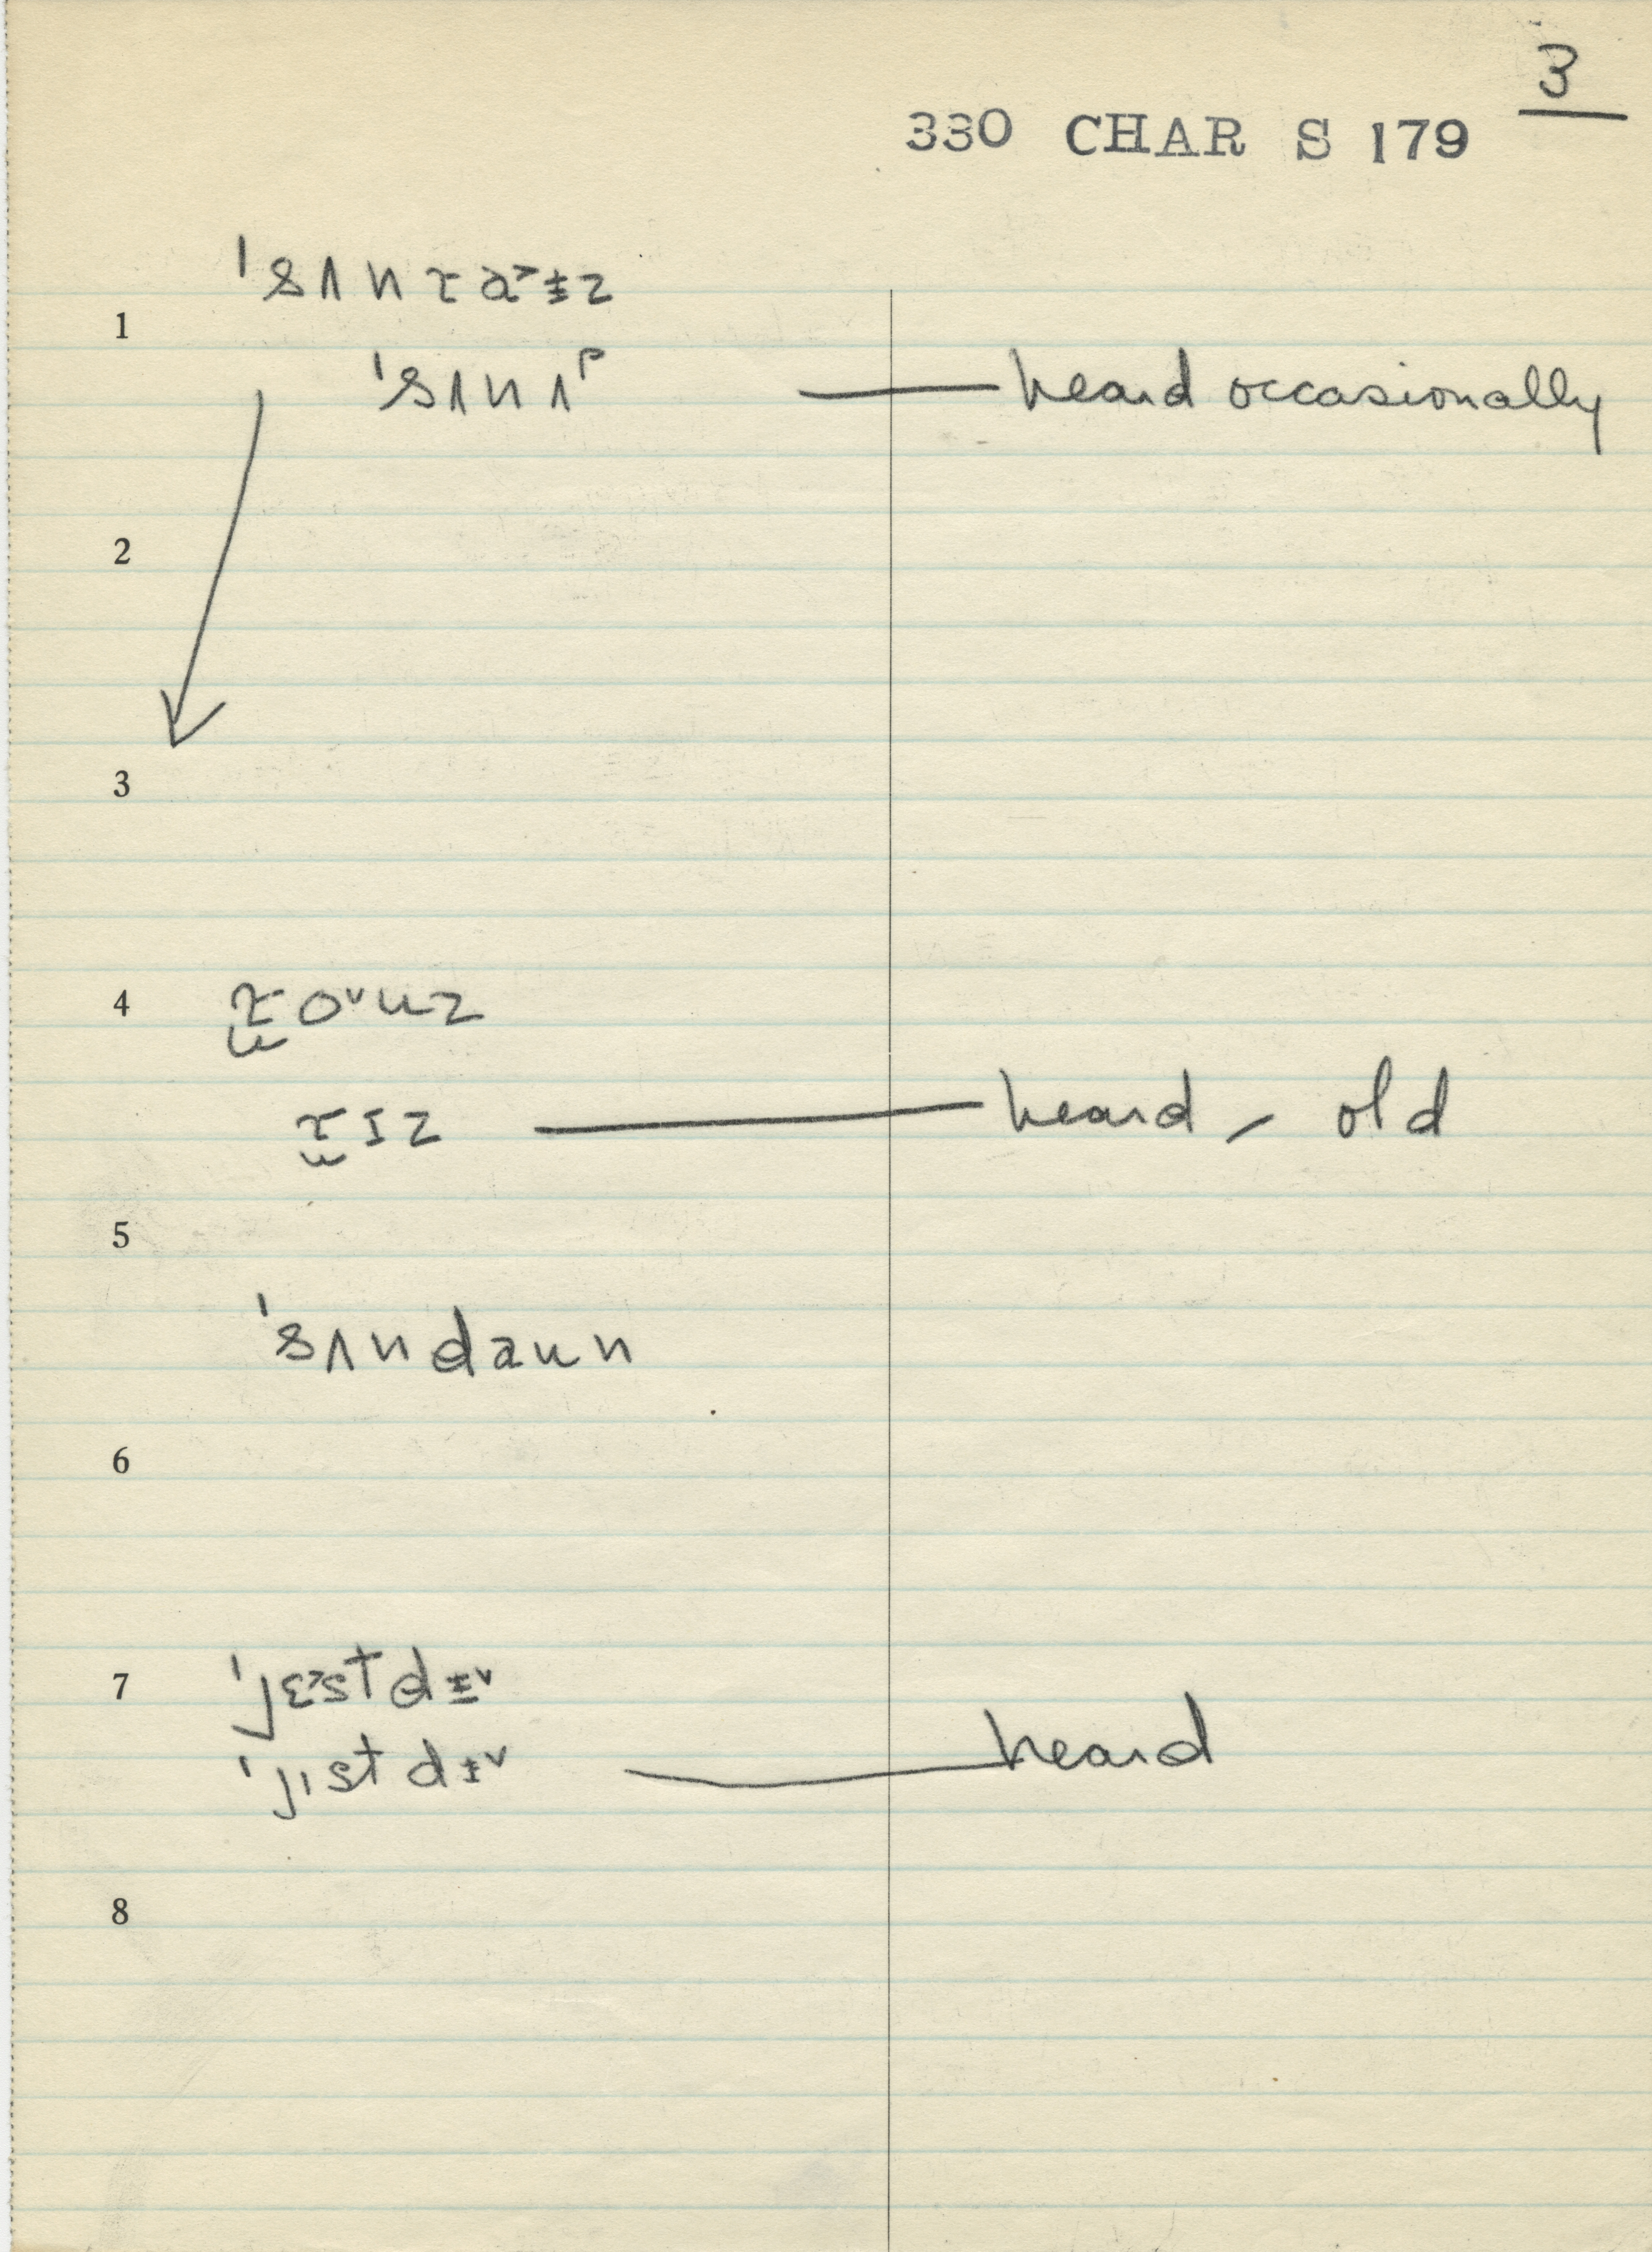 3
330 CHAR S 179
1
ˈsʌnɹa˃ɨz
ˈsʌnʌᵖ — heard occasionally
2
3
4 ɹo˅uz
ɹɪz — heard, old
5
ˈsʌndaun
6
7 ˈjɛ˃stdɨ˅
ˈjɪstdɨ˅ — heard
8